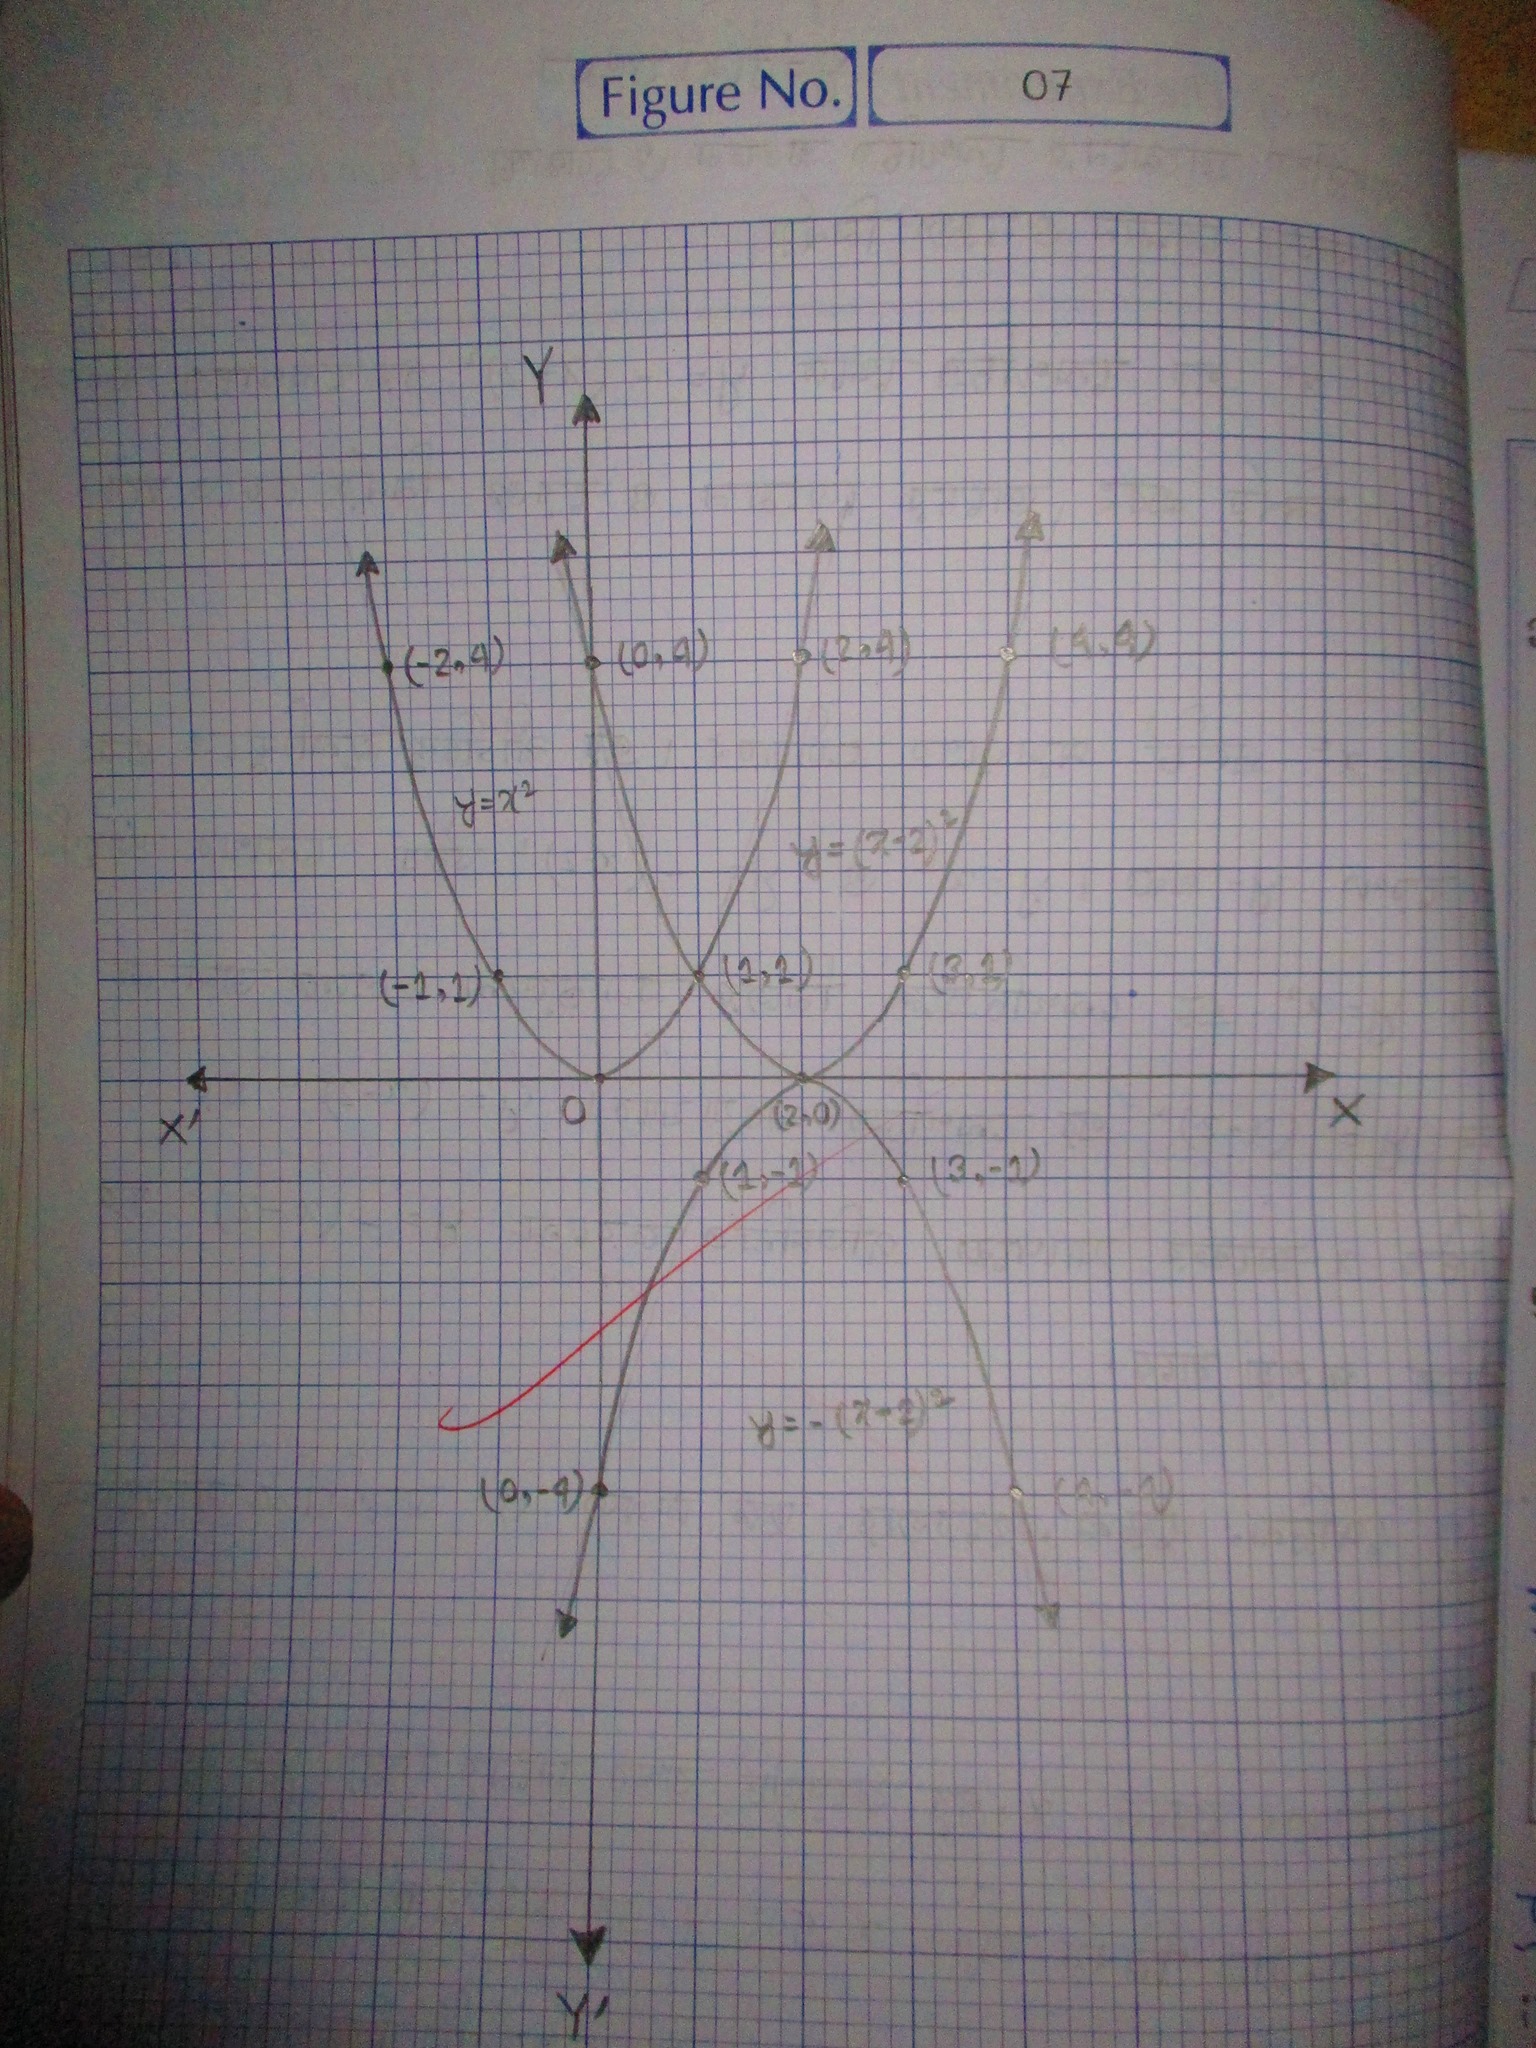 Figure No. 07
Y
(-2,4) (0,4) (2,4) (4,4)
y=x²
y=(x-2)²
(-1,1) (1,1) (3,1)
X' O (2,0) X
(1,-1) (3,-1)
y=-(x-2)²
(0,-4)
Y'